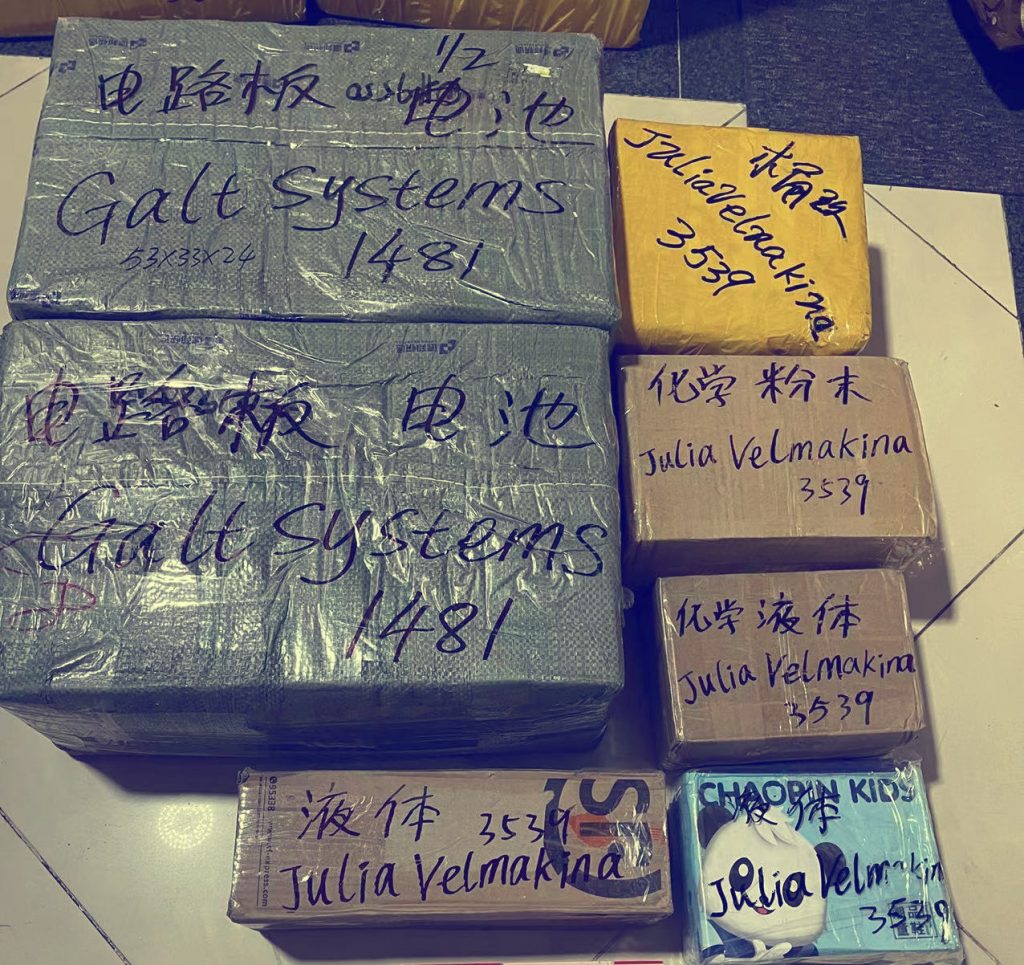 1/2
电路板 电池
Galt Systems
53X33X24 1481
电路板 电池
Galt Systems
1481
Julia Velmakina
3539
化学 粉末
Julia Velmakina
3539
化学 液体
Julia Velmakina
3539
液体 3539
Julia Velmakina
CHAOPIN KIDS
液体
Julia Velmakin
3539